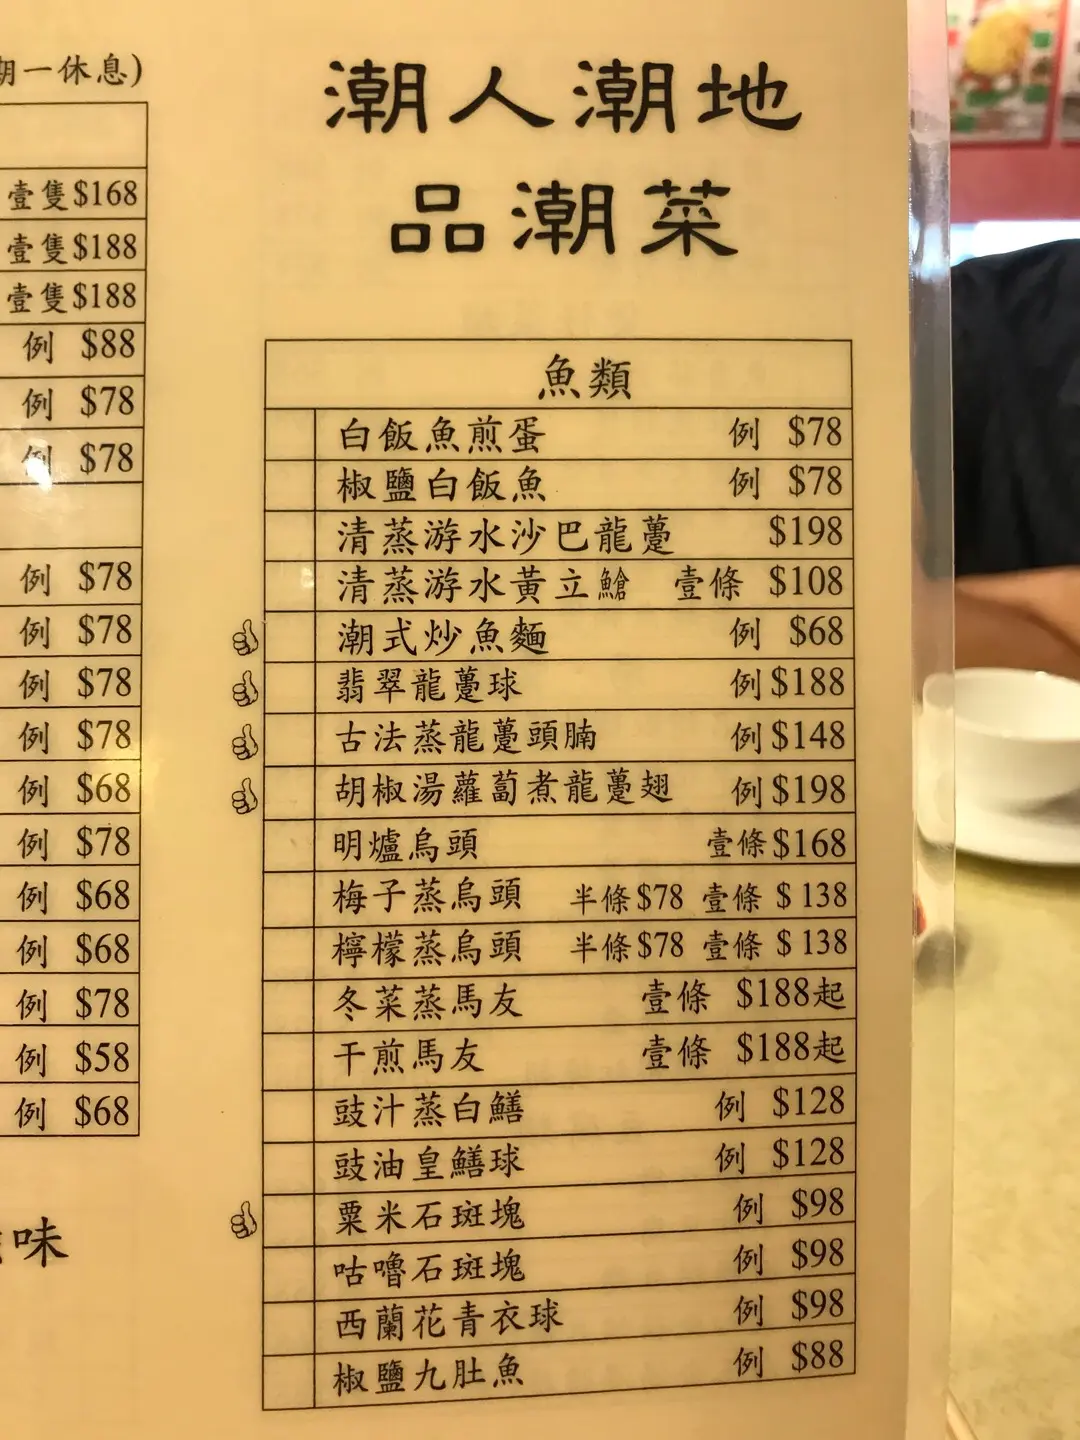 期一休息)
壹隻$168
壹隻$188
壹隻$188
例 $88
例 $78
例 $78
例 $78
例 $78
例 $78
例 $78
例 $68
例 $78
例 $68
例 $68
例 $78
例 $58
例 $68
味
潮人潮地
品潮菜
魚類
白飯魚煎蛋 例 $78
椒鹽白飯魚 例 $78
清蒸游水沙巴龍躉 $198
清蒸游水黃立鯧 壹條 $108
潮式炒魚麵 例 $68
翡翠龍躉球 例$188
古法蒸龍躉頭腩 例$148
胡椒湯蘿蔔煮龍躉翅 例$198
明爐烏頭 壹條$168
梅子蒸烏頭 半條$78 壹條 $138
檸檬蒸烏頭 半條$78 壹條 $138
冬菜蒸馬友 壹條 $188起
干煎馬友 壹條 $188起
豉汁蒸白鱔 例 $128
豉油皇鱔球 例 $128
粟米石斑塊 例 $98
咕嚕石斑塊 例 $98
西蘭花青衣球 例 $98
椒鹽九肚魚 例 $88